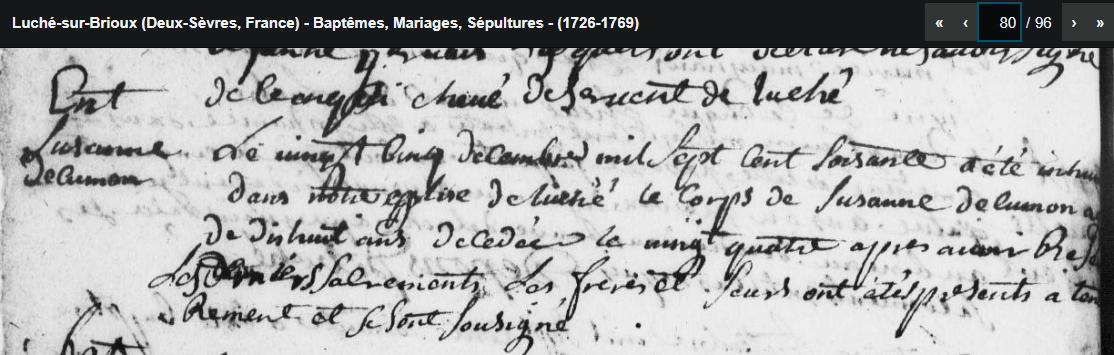 Luché-sur-Brioux (Deux-Sèvres, France) - Baptêmes, Mariages, Sépultures - (1726-1769)
« ‹ 80 / 96 › »
Ent
de ce enqui chiué deseruent de luché
Susanne
delunon
Le uingt cinq decembre mil sept cent soisante a été inhu
dans notre eglise de luché le corps de susanne delunon
de dishuit ans decedée le uingt quatre apres auoir
Les derniers sacrements. Les freres et seurs ont étés presents a
Rement et se sont sousigné